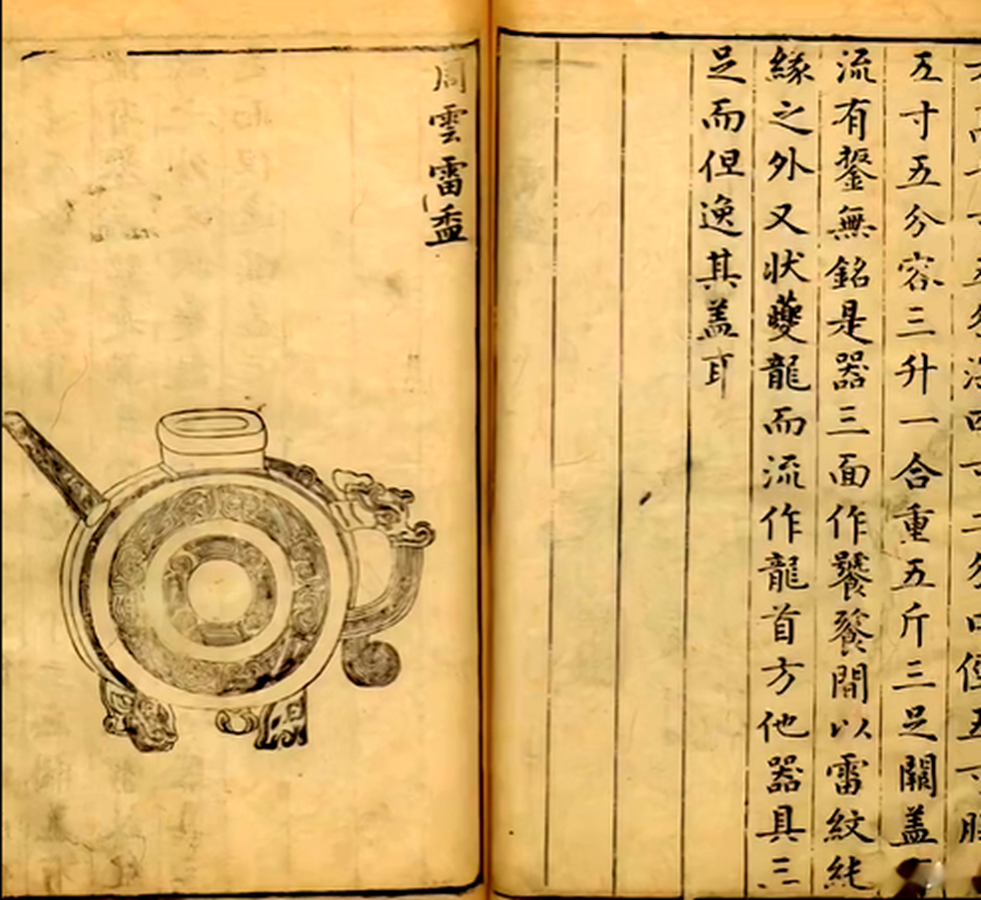 五分深四寸二分口徑五寸腹
五寸五分容三升一合重五斤三足闕盖
流有鋬無銘是器三面作饕餮間以雷紋純
緣之外又狀夔龍而流作龍首方他器具三
足而但逸其盖耳
周雲雷盉